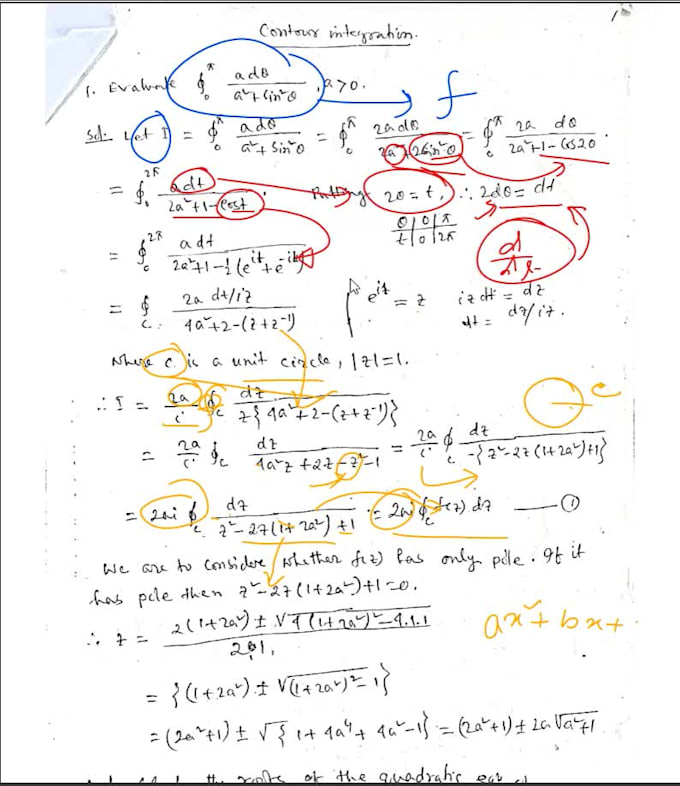 Contour integration.
1. Evaluate ∮₀^π adθ/(a²+Sin²θ), a>0. f
Sol: Let I = ∮₀^π adθ/(a²+Sin²θ) = ∮₀^π 2adθ/(2a²+2Sin²θ) = ∮₀^π 2a dθ/(2a²+1-Cos2θ).
= ∮₀^2π adt/(2a²+1-Cost). Putting 2θ=t, ∴ 2dθ=dt
θ|0|π
t|0|2π
= ∮₀^2π adt/(2a²+1-½(e^it+e^-it))
= ∮_C 2a dt/iz/(4a²+2-(z+z⁻¹)) e^it = z iz dt = dz
dt = dz/iz.
where C is a unit circle, |z|=1.
∴ I = 2a/i ∮_C dz/(z{4a²+2-(z+z⁻¹)}) C
= 2a/i ∮_C dz/(4a²z+2z-z²-1) = 2a/i ∮_C dz/(-{z²-2z(1+2a²)+1})
= 2ai ∮_C dz/(z²-2z(1+2a²)+1) = 2ai ∮_C f(z) dz —— ①
We are to consider whether f(z) has only pole. If it
has pole then z²-2z(1+2a²)+1=0.
∴ z = (2(1+2a²) ± √(4(1+2a²)²-4.1.1))/2.1. ax²+bx+
= {(1+2a²) ± √((1+2a²)²-1)}
= (2a²+1) ± √{1+4a⁴+4a²-1} = (2a²+1) ± 2a√(a²+1)
the roots of the quadratic